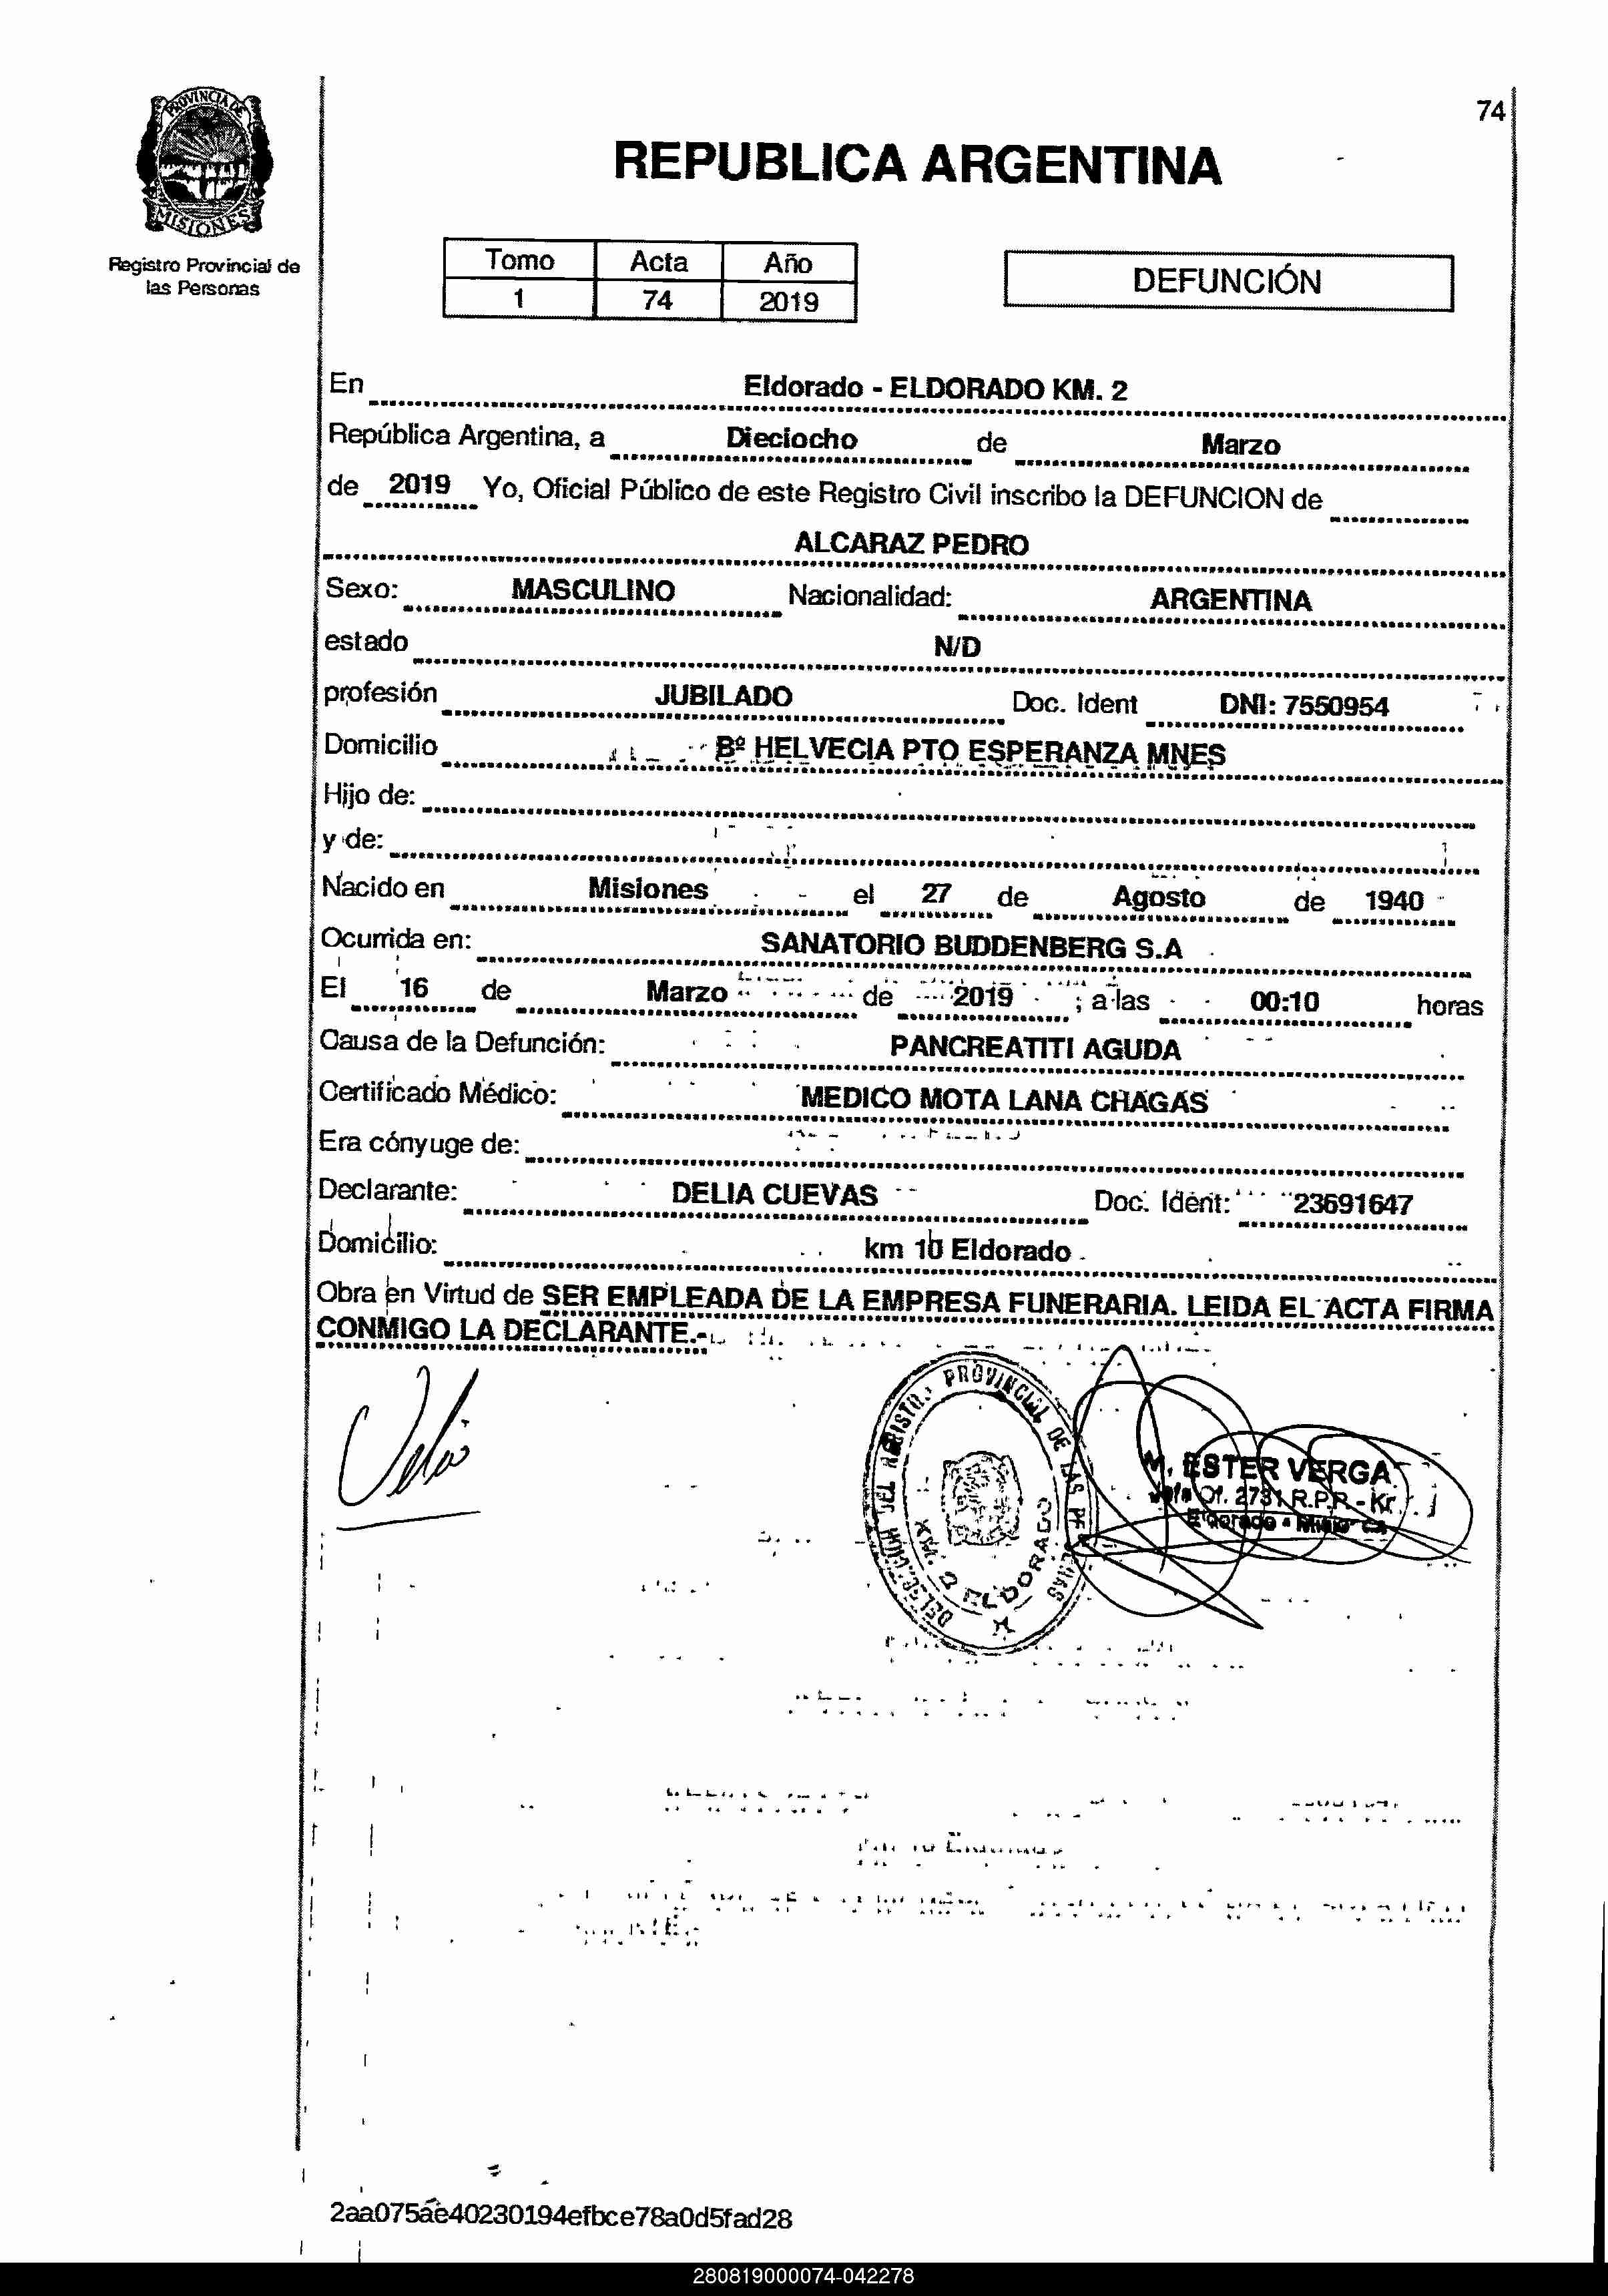 74
PROVINCIA DE
MISIONES
Registro Provincial de
las Personas
REPUBLICA ARGENTINA
Tomo Acta Año
1 74 2019
DEFUNCIÓN
En Eldorado - ELDORADO KM. 2
República Argentina, a Dieciocho de Marzo
de 2019 Yo, Oficial Público de este Registro Civil inscribo la DEFUNCION de
ALCARAZ PEDRO
Sexo: MASCULINO Nacionalidad: ARGENTINA
estado N/D
profesión JUBILADO Doc. Ident DNI: 7550954
Domicilio Bº HELVECIA PTO ESPERANZA MNES
Hijo de:
y de:
Nacido en Misiones el 27 de Agosto de 1940
Ocurrida en: SANATORIO BUDDENBERG S.A
El 16 de Marzo de 2019 ; a las 00:10 horas
Causa de la Defunción: PANCREATITI AGUDA
Certificado Médico: MEDICO MOTA LANA CHAGAS
Era cónyuge de:
Declarante: DELIA CUEVAS Doc. Ident: 23691647
Domicilio: km 10 Eldorado
Obra en Virtud de SER EMPLEADA DE LA EMPRESA FUNERARIA. LEIDA EL ACTA FIRMA
CONMIGO LA DECLARANTE.-
PROVINCIAL DE LAS
KM. 2 ELDORADO
M. ESTER VERGA
Of. 2731 R.P.P.
Eldorado -
2aa075ae40230194efbce78a0d5fad28
280819000074-042278